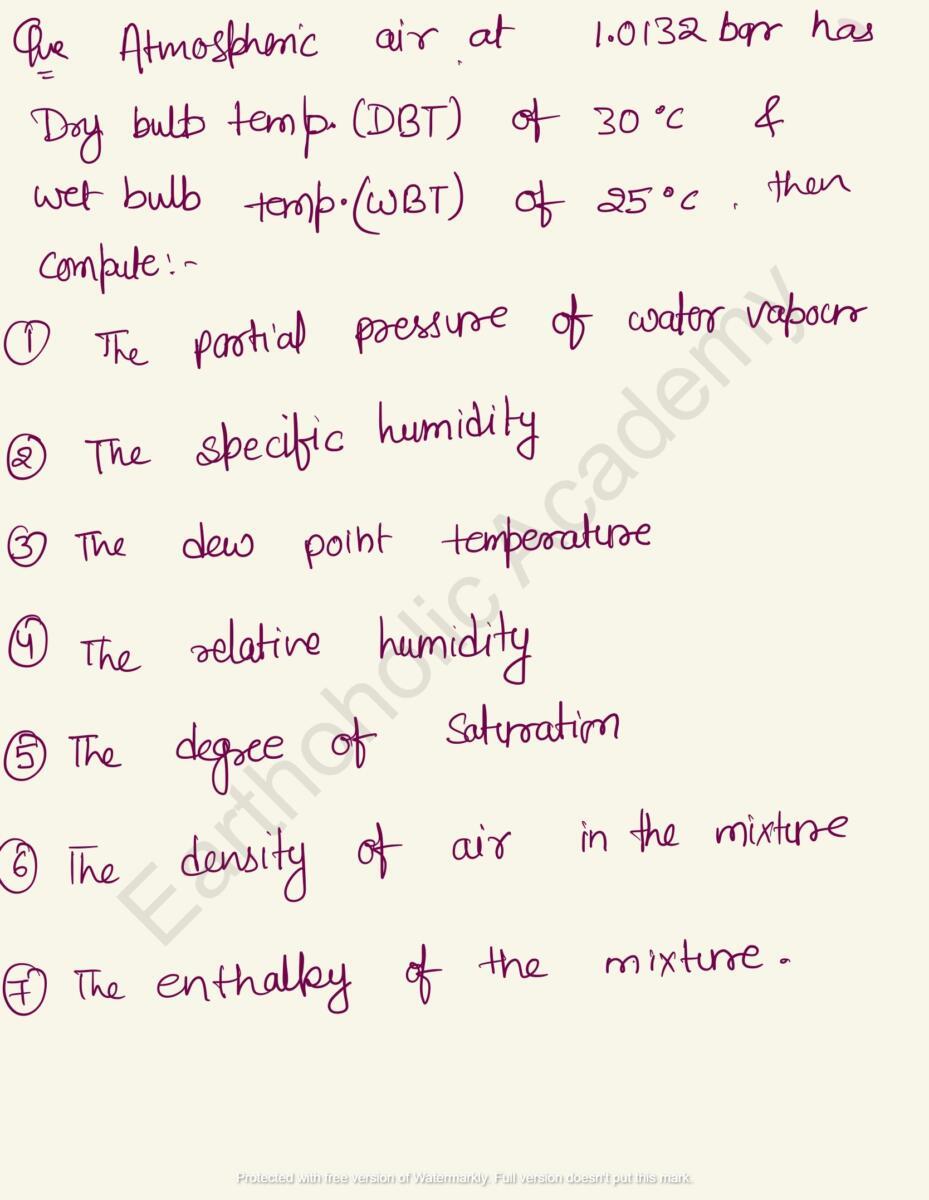 Que Atmospheric air at 1.0132 bar has
Dry bulb temp. (DBT) of 30 °C &
wet bulb temp. (WBT) of 25 °C. then
Compute:-
① The partial pressure of water vapour
② The specific humidity
③ The dew point temperature
④ The relative humidity
⑤ The degree of Saturation
⑥ The density of air in the mixture
⑦ The enthalpy of the mixture.
Earthoholic Academy
Protected with free version of Watermarkly. Full version doesn't put this mark.